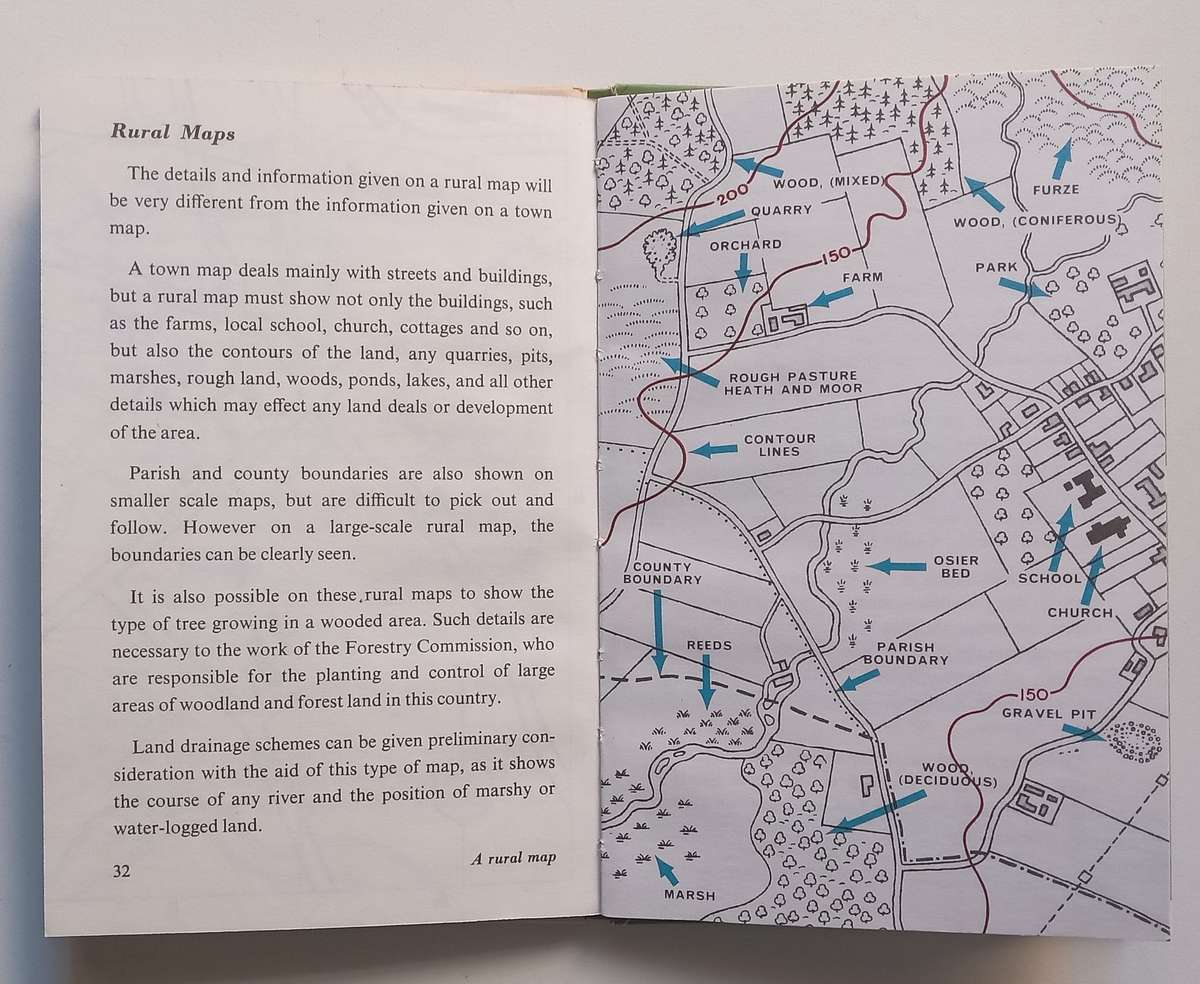 Rural Maps
The details and information given on a rural map will
be very different from the information given on a town
map.
A town map deals mainly with streets and buildings,
but a rural map must show not only the buildings, such
as the farms, local school, church, cottages and so on,
but also the contours of the land, any quarries, pits,
marshes, rough land, woods, ponds, lakes, and all other
details which may effect any land deals or development
of the area.
Parish and county boundaries are also shown on
smaller scale maps, but are difficult to pick out and
follow. However on a large-scale rural map, the
boundaries can be clearly seen.
It is also possible on these rural maps to show the
type of tree growing in a wooded area. Such details are
necessary to the work of the Forestry Commission, who
are responsible for the planting and control of large
areas of woodland and forest land in this country.
Land drainage schemes can be given preliminary con-
sideration with the aid of this type of map, as it shows
the course of any river and the position of marshy or
water-logged land.
32
A rural map
WOOD, (MIXED)
FURZE
200
QUARRY
WOOD, (CONIFEROUS)
ORCHARD
150
PARK
FARM
ROUGH PASTURE
HEATH AND MOOR
CONTOUR
LINES
COUNTY
BOUNDARY
OSIER
BED
SCHOOL
CHURCH
REEDS
PARISH
BOUNDARY
150
GRAVEL PIT
WOOD,
(DECIDUOUS)
MARSH